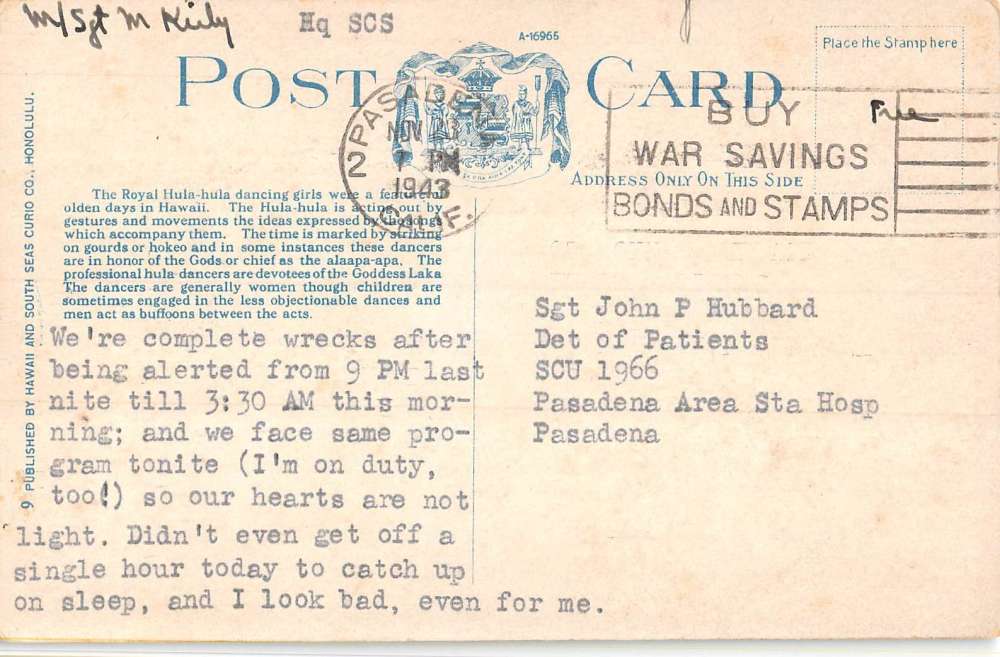 M/Sgt M Kiely Hq SCS
A-16965
POST CARD
Place the Stamp here
Free
2 PASADENA
NOV 13
7 PM
1943
CALIF.
BUY
WAR SAVINGS
BONDS AND STAMPS
ADDRESS ONLY ON THIS SIDE
The Royal Hula-hula dancing girls were a feature of
olden days in Hawaii. The Hula-hula is acting out by
gestures and movements the ideas expressed by the songs
which accompany them. The time is marked by striking
on gourds or hokeo and in some instances these dancers
are in honor of the Gods or chief as the alaapa-apa. The
professional hula dancers are devotees of the Goddess Laka
The dancers are generally women though children are
sometimes engaged in the less objectionable dances and
men act as buffoons between the acts.
9 PUBLISHED BY HAWAII AND SOUTH SEAS CURIO CO., HONOLULU.
We're complete wrecks after
being alerted from 9 PM last
nite till 3:30 AM this mor-
ning; and we face same pro-
gram tonite (I'm on duty,
too!) so our hearts are not
light. Didn't even get off a
single hour today to catch up
on sleep, and I look bad, even for me.
Sgt John P Hubbard
Det of Patients
SCU 1966
Pasadena Area Sta Hosp
Pasadena